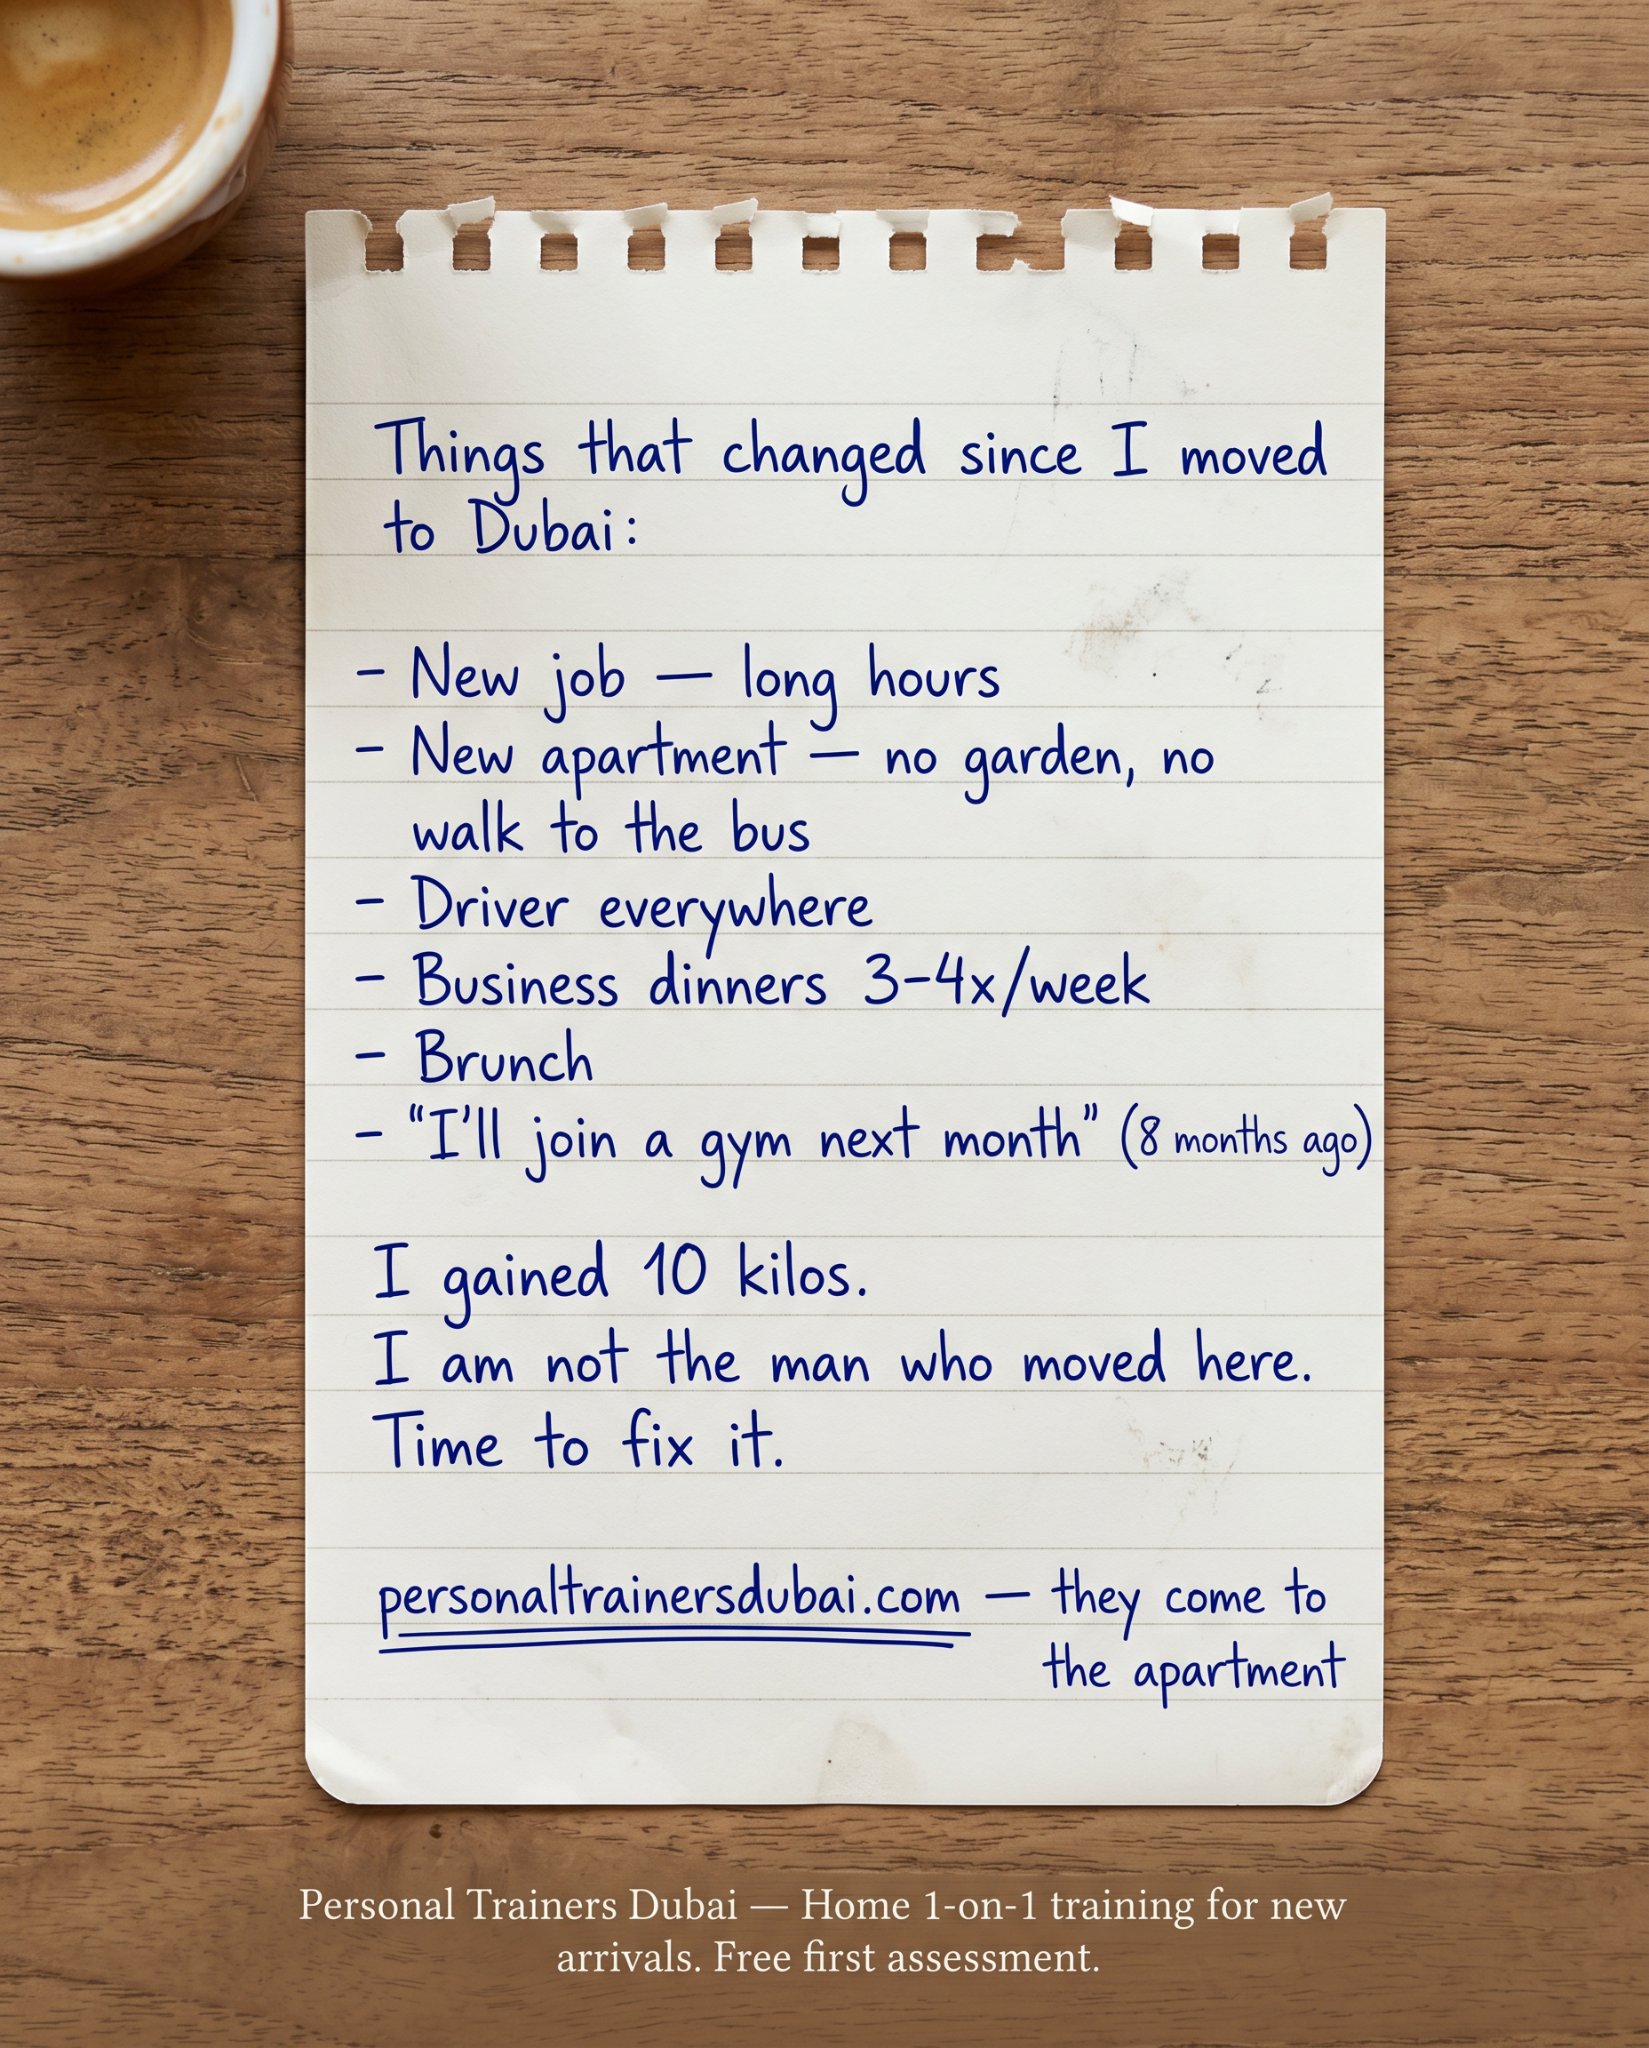 Things that changed since I moved
to Dubai:
- New job — long hours
- New apartment — no garden, no
walk to the bus
- Driver everywhere
- Business dinners 3-4x/week
- Brunch
- “I'll join a gym next month” (8 months ago)
I gained 10 kilos.
I am not the man who moved here.
Time to fix it.
personaltrainersdubai.com — they come to
the apartment
Personal Trainers Dubai — Home 1-on-1 training for new
arrivals. Free first assessment.